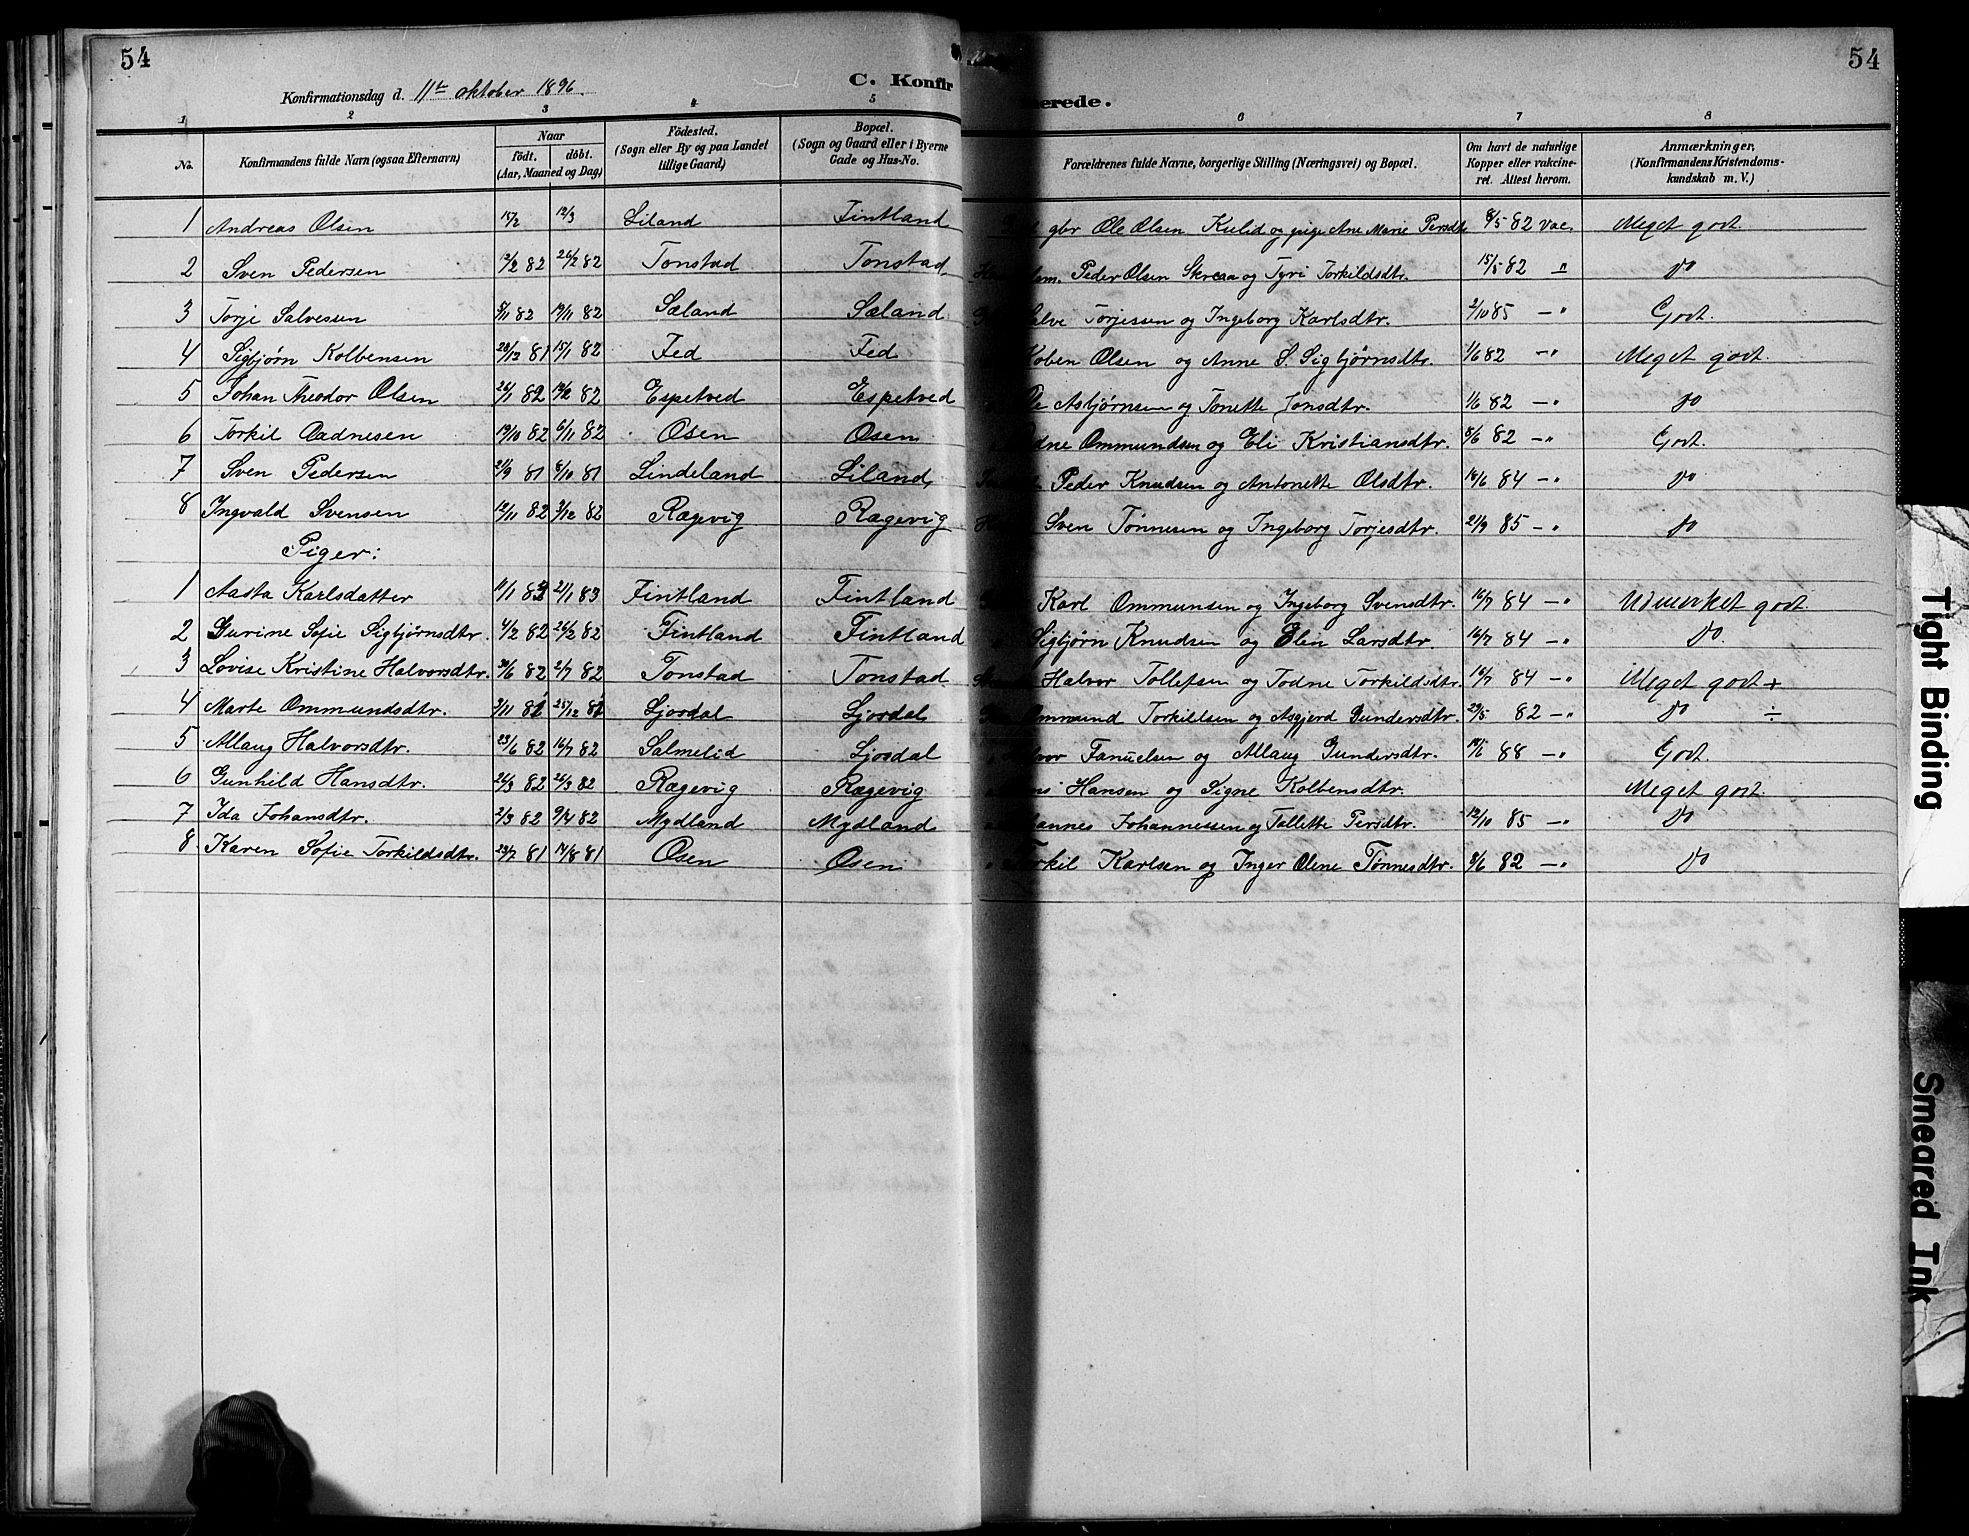 54
54
Konfirmationsdag d. 11te oktober 1896.
C. Konfir merede.
1 2 3 4 5 6 7 8
No. Konfirmandens fulde Navn (ogsaa Efternavn) Naar født. døbt. (Aar, Maaned og Dag) Fødested. (Sogn eller By og paa Landet tillige Gaard) Bopæl. (Sogn og Gaard eller i Byerne Gade og Hus-No. Forældrenes fulde Navne, borgerlige Stilling (Næringsvei) og Bopæl. Om havt de naturlige Kopper eller vakcineret. Attest herom. Anmærkninger, (Konfirmandens Kristendomskundskab m. V.)
1 Andreas Olsen 15/2 12/3 Liland Fintland gbr Ole Olsen Kulid og pige Ane Marie Persdtr 8/5 82 vac. Meget godt.
2 Sven Pedersen 12/2 82 26/2 82 Tonstad Tonstad Peder Olsen Skreaa og Tyri Torkildsdtr. 15/5 82 " do
3 Torje Salvessen 5/11 82 19/11 82 Sæland Sæland Salve Torjessen og Ingeborg Karlsdtr. 2/10 85 -" Godt.
4 Sigbjørn Kolbensen 28/12 81 15/1 82 Fed Fed Koben Olsen og Anne S. Sigbjørnsdtr. 1/6 82 -" Meget godt.
5 Johan Theodor Olsen 26/1 82 12/2 82 Espetved Espetved Ole Asbjørnsen og Tonette Jonsdtr. 1/6 82 -" do
6 Torkil Aadnesen 19/10 82 6/11 82 Osen Osen Ommundsen og Eli Kristiansdtr. 8/6 82 -" Godt.
7 Sven Pedersen 21/9 81 8/10 81 Lindeland Liland Peder Knudsen og Antonette Olsdtr. 18/6 84 -" do
8 Ingvald Svensen 12/11 82 3/12 82 Rægevig Rægevig Sven Tønnesen og Ingeborg Torjesdtr. 21/9 85 -" do
Piger:
1 Aasta Karlsdatter 11/1 83 21/1 83 Fintland Fintland Karl Ommunsen og Ingeborg Svensdtr. 16/7 84 -" Udmerket godt.
2 Gurine Sofie Sigbjørnsdtr. 4/2 82 26/2 82 Fintland Fintland Sigbjørn Knudsen og Elin Larsdtr. 16/7 84 -" do.
3 Lovise Kristine Halvorsdtr. 30/6 82 2/7 82 Tonstad Tonstad Halvor Tollefsen og Todne Torkildsdtr. 16/7 84 -" Meget godt +
4 Marte Ommundsdtr. 3/11 81 25/12 81 Ljosdal Ljosdal Ommund Torkillsen og Asgjerd Gundersdtr. 29/5 82 -" do ÷
5 Allaug Halvorsdtr. 23/6 82 16/7 82 Salmelid Ljosdal Halvor Fanuelsen og Allaug Gundersdtr. 88 -" Godt
6 Gunhild Hansdtr. 24/3 82 26/3 82 Rægevig Rægevig Hansen og Signe Kolbensdtr. Meget godt.
7 Ida Johansdtr. 2/3 82 9/4 82 Mydland Mydland Johannes Johannessen og Tollette Persdtr. 12/10 85 -" do
8 Karen Sofie Torkildsdtr. 23/7 81 14/8 81 Osen Osen Torkil Karlsen og Inger Olene Tønnesdtr. 8/6 82 -" do
Tight Binding
Smeared Ink